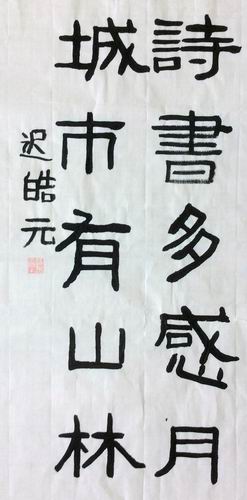 詩書多感月
城市有山林
迟皓元